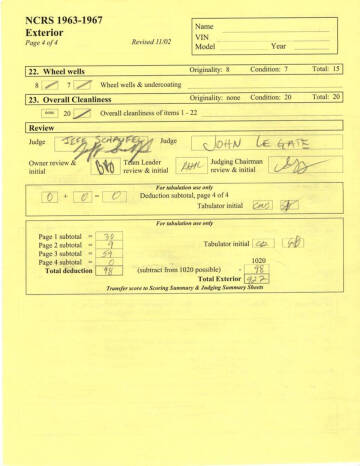 NCRS 1963-1967
Exterior
Page 4 of 4 Revised 11/02
Name
VIN
Model Year
22. Wheel wells Originality: 8 Condition: 7 Total: 15
8 7 Wheel wells & undercoating
23. Overall Cleanliness Originality: none Condition: 20 Total: 20
none 20 Overall cleanliness of items 1 - 22
Review
Judge JEFF Judge JOHN LEGATE
Owner review & initial Team Leader review & initial Judging Chairman review & initial
For tabulation use only
0 + 0 = 0 Deduction subtotal, page 4 of 4
Tabulator initial
For tabulation use only
Page 1 subtotal = 30
Page 2 subtotal = 9 Tabulator initial
Page 3 subtotal = 59
Page 4 subtotal = 0 1020
Total deduction = 98 (subtract from 1020 possible) - 98
Total Exterior 922
Transfer score to Scoring Summary & Judging Summary Sheets